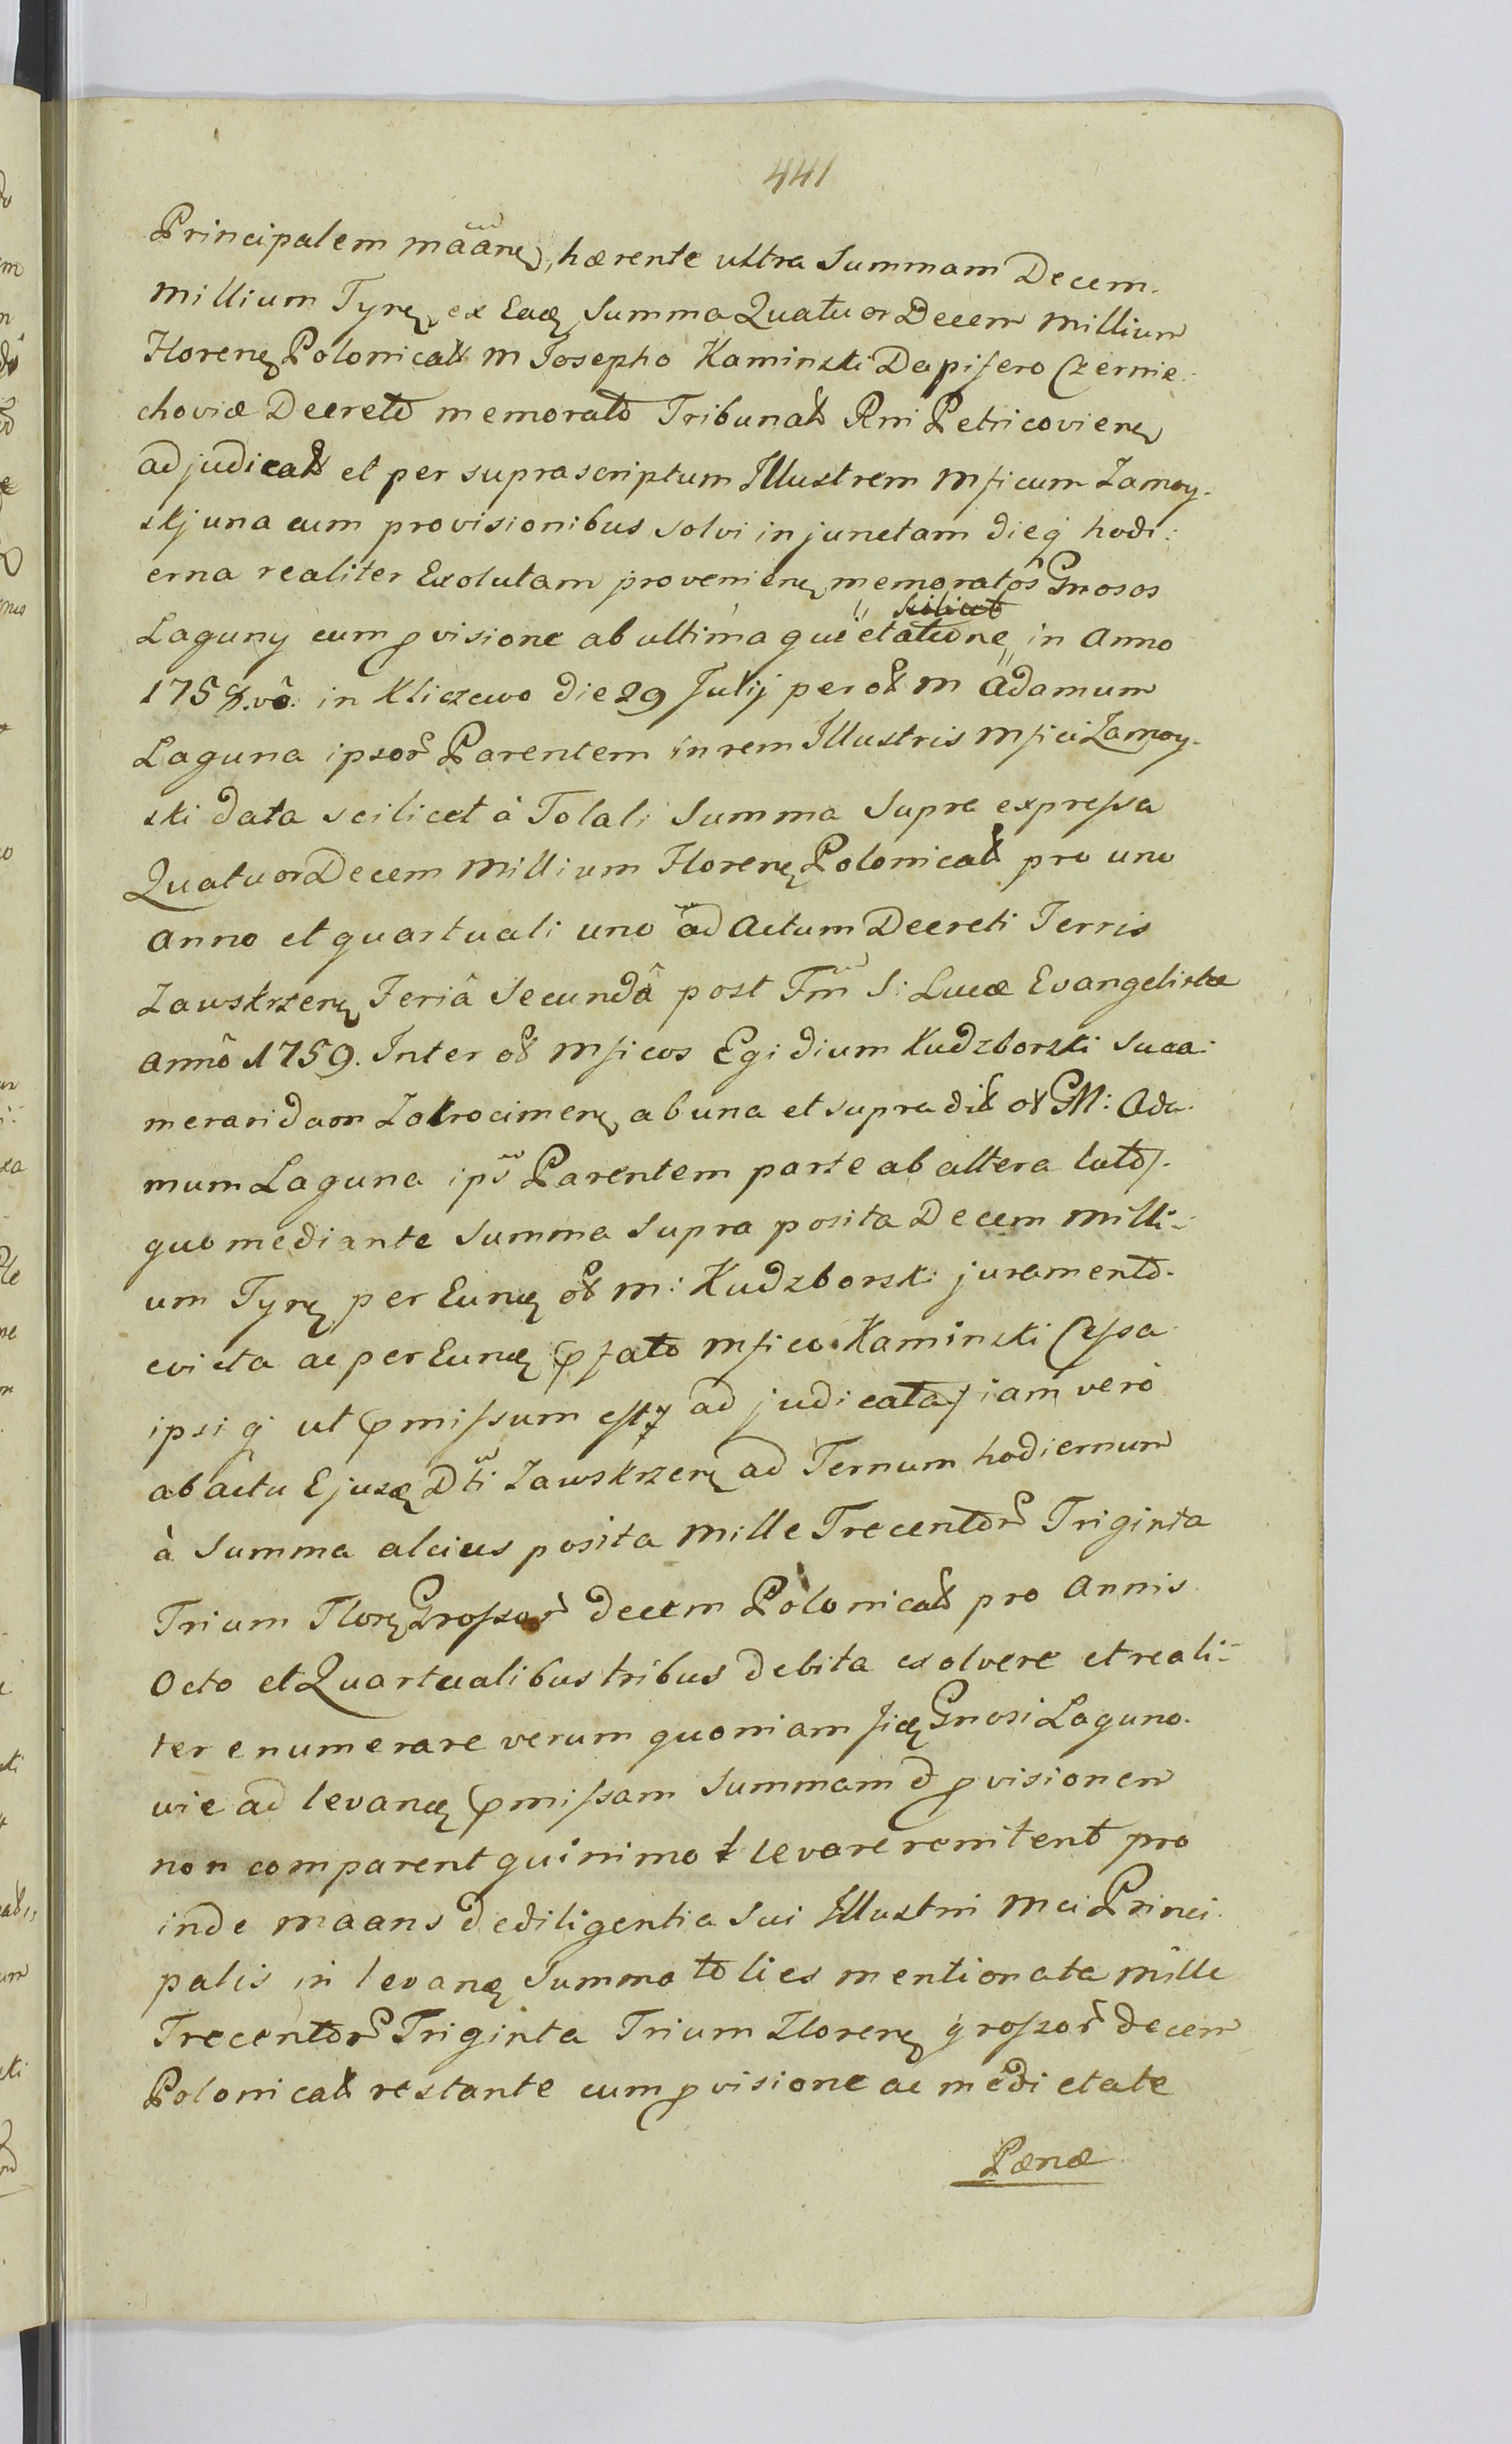 441
Principalem mãanę, hærente ultra Summam Decem.
Millium Tyrę ex Eadę Summa Quatuor Decem Millium
Florenę Polonical m Josepho Kaminski Dapifero Czernie:
choviæ Decreto memorato Tribunal Rni Petricovienę
adjudical et per suprascriptum Illustrem Mficum Zamoy-
skj una cum provisionibus solvi injunctam dieq hodi:
erna realiter Exolutam provenienę memoratos Gnosos
Laguny cum pvisione ab ultima quietatione in Anno
175 vô. in Kliczewo die 29 Julij per ol m Adamum
Laguna ipsor Parentem in rem Illustris Mfici Zamoy-
ski data scilicet à Totali Summa Supra expressa
Quatuor Decem Millium Florenę Polonical pro uno
Anno et quartuali uno ad Actum Decreti Terris
Zawskrzenę Feriâ Secundâ post Fm S: Lucæ Evangelistæ
Annô 1759. Inter ol Mficos Egidium Kudzborski Succa:
meraridam Zakrocimenę ab una et supradil ol GM: Ada-
mum Laguna ips Parentem parte ab altera lato/.
quo mediante Summa Supra posita Decem Milli-
um Tyrę per Eundę ol M: Kudzborski juramento.
evicta ac per Eundę pfato Mfico Kaminski Cessa
ipsiq ut pmissum est/ adjudicata/ iam verò
ab actu Ejusdę Dti Zawskrzenę ad Ternum hodiernum
à Summa alcius posita Mille Trecentor Triginta
Trium Florę Grossor decem Polonical pro Annis
Octo et Quartualibus tribus debita exolvere et reali-
ter enumerare verum quoniam ficę Gnosi Laguno-
vie ad levandę pmissam Summam d pvisionem
non comparent quinimo levare renitent pro
inde maans de diligentia Sui Illustri Mci Princi-
palis in levandę Summa toties mentionata Mille
Trecentor Triginta Trium Florenę grossor decem
Polonical restante cum pvisione ac medietate
Pænæ